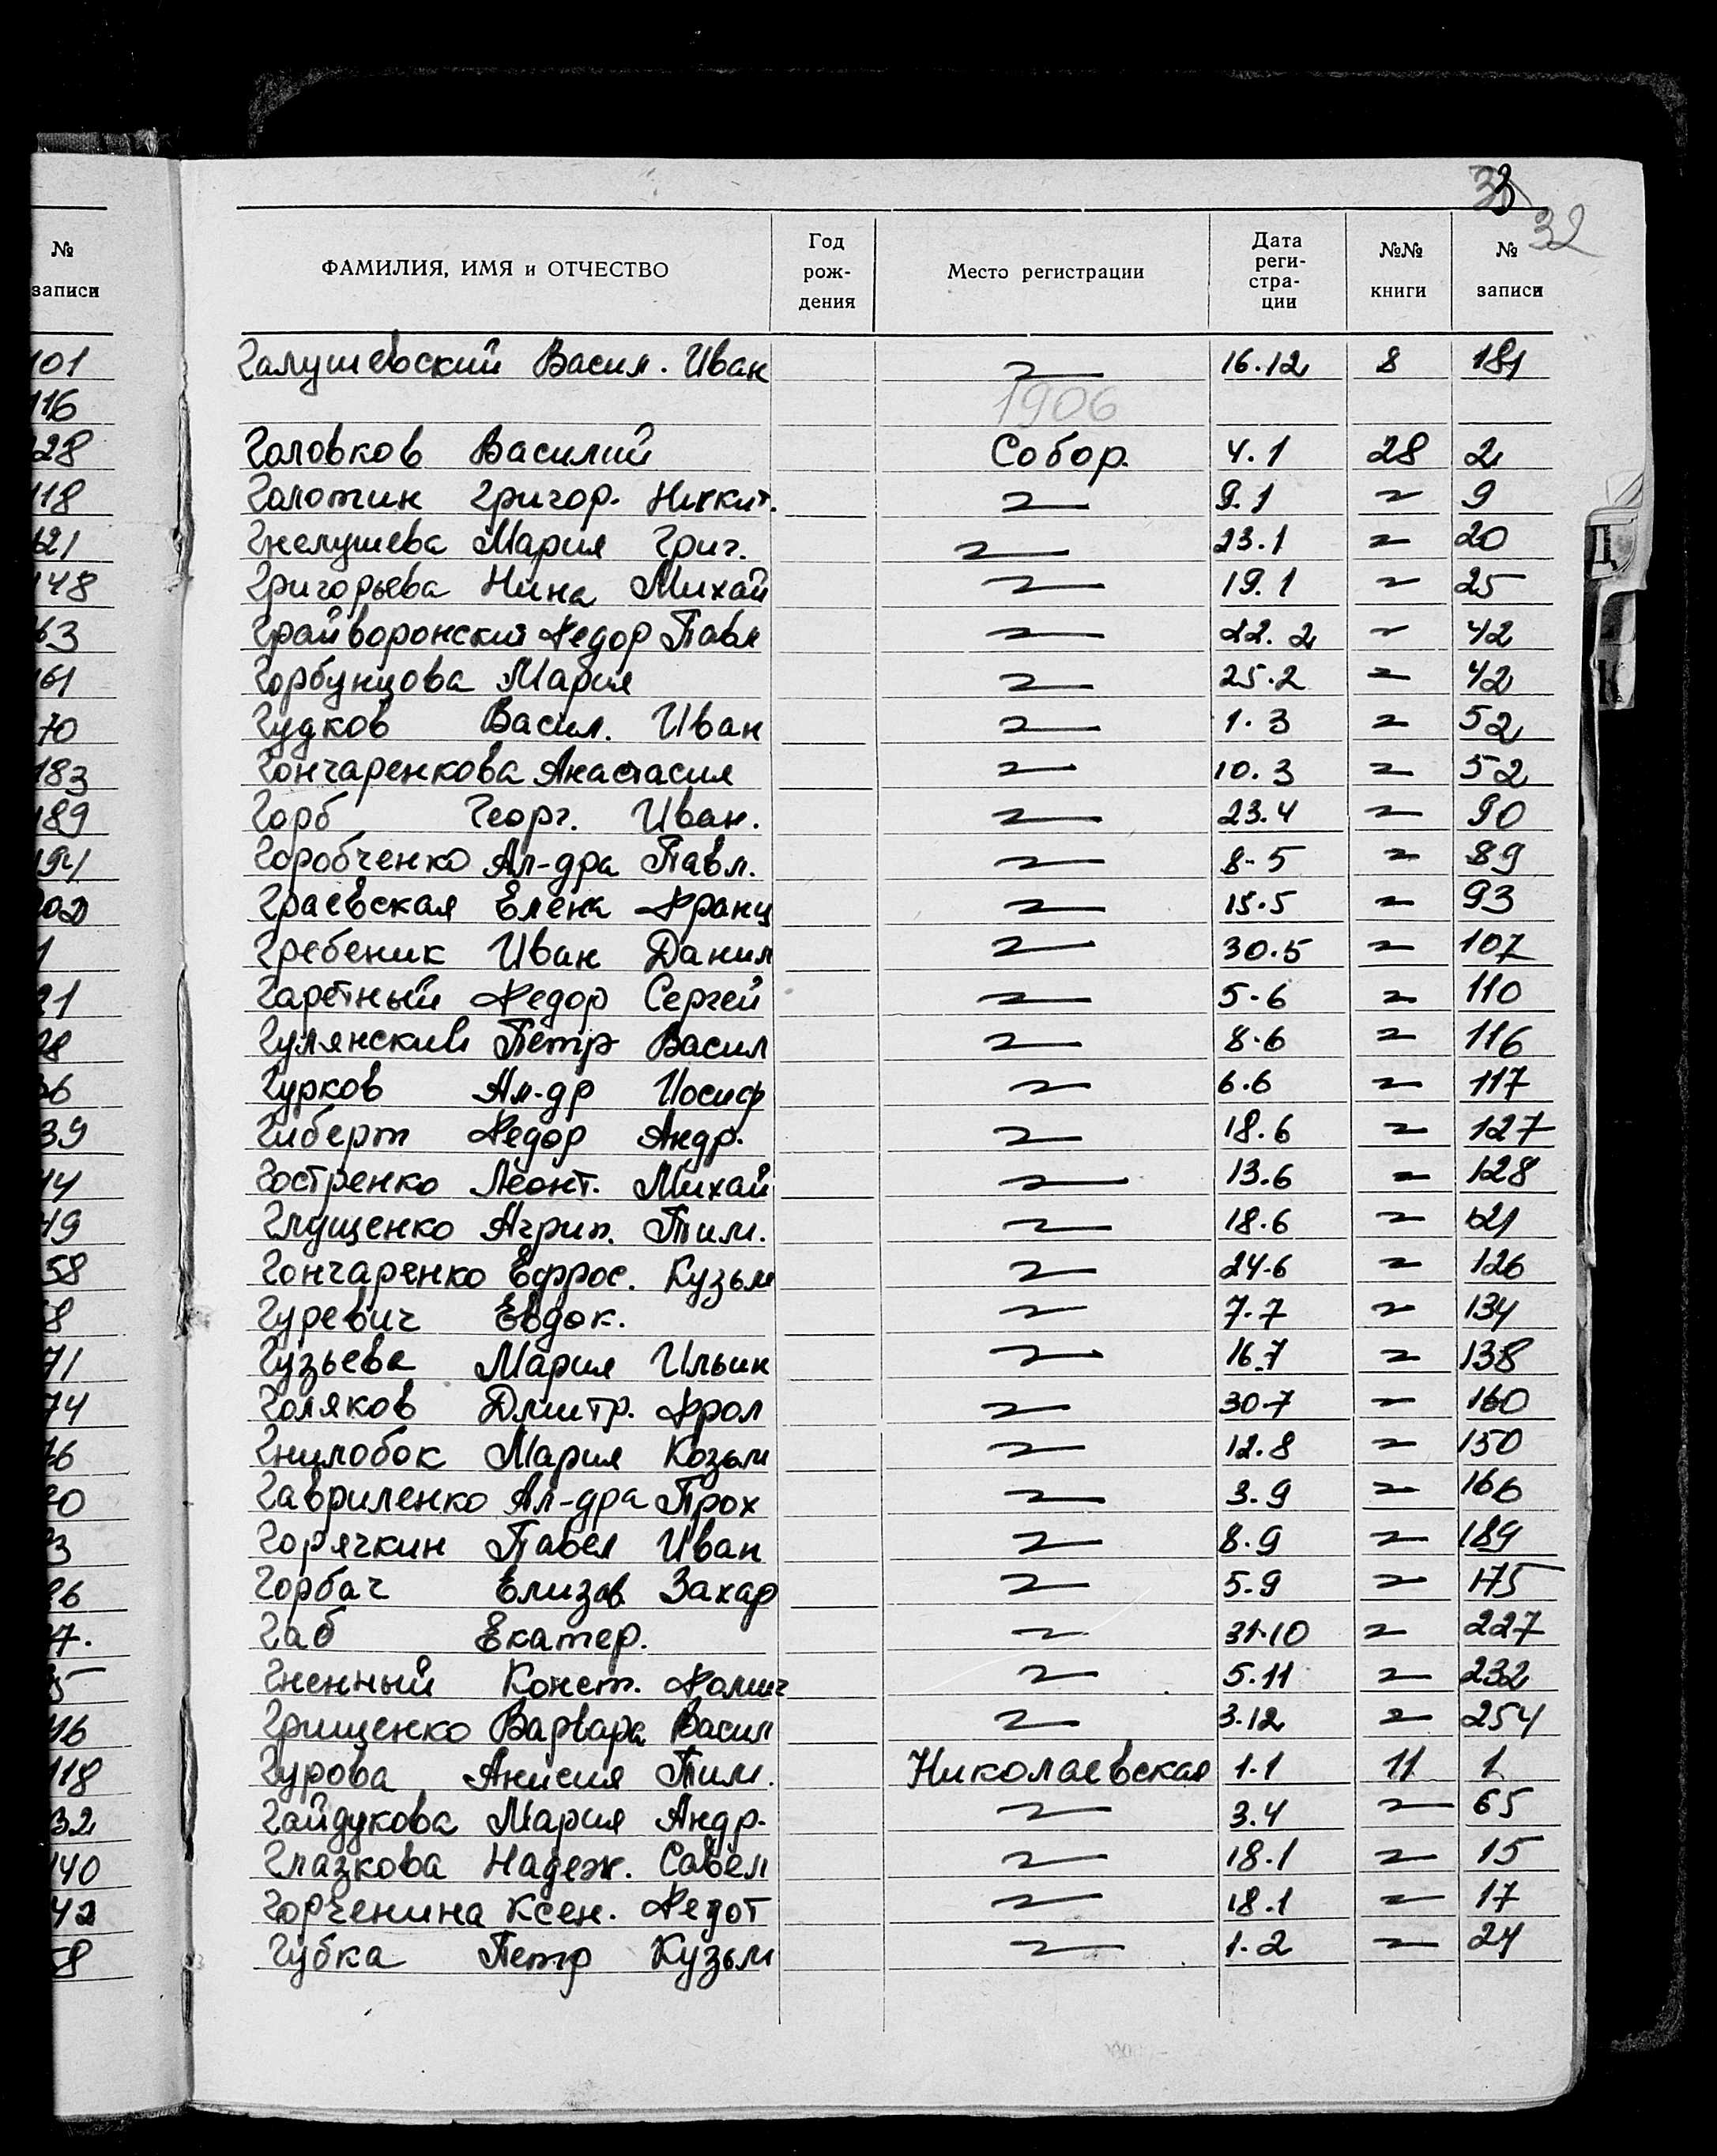 33
32
№ записи
ФАМИЛИЯ, ИМЯ и ОТЧЕСТВО Год рож- дения Место регистрации Дата реги- стра- ции №№ книги № записи
101 Галушевский Васил. Иван 〃 16.12 8 181
116 1906
Головков Василий Собор. 4.1 28 2
118 Голотин Григор. Никит. 〃 9.1 〃 9
Гнелушева Мария Григ. 〃 23.1 〃 20
148 Григорьева Нина Михай 〃 19.1 〃 25
Грайворонский Федор Павл 〃 22.2 〃 42
Горбунцова Мария 〃 25.2 〃 42
70 Гудков Васил. Иван 〃 1.3 〃 52
183 Гончаренкова Анастасия 〃 10.3 〃 52
189 Горб Георг. Иван. 〃 23.4 〃 90
Горобченко Ал-дра Павл. 〃 8-5 〃 89
Граевская Елена Франц 〃 15.5 〃 93
Гребеник Иван Данил 〃 30.5 〃 107
21 Гаретный Федор Сергей 〃 5-6 〃 110
Гулянский Петр Васил 〃 8.6 〃 116
Гурков Ал-др Иосиф 〃 6.6 〃 117
39 Гиберт Федор Андр. 〃 18.6 〃 127
44 Гостренко Леонт. Михай 〃 13.6 〃 128
49 Глущенко Агрип. Тим. 〃 18.6 〃 121
58 Гончаренко Ефрос. Кузьм 〃 24.6 〃 126
8 Гуревич Евдок. 〃 7.7 〃 134
71 Гузьева Мария Ильин 〃 16.7 〃 138
74 Голяков Дмитр. Фрол 〃 30.7 〃 160
76 Гнилобок Мария Козьм 〃 12.8 〃 150
Гавриленко Ал-дра Прох 〃 3.9 〃 166
3 Горячкин Павел Иван 〃 8.9 〃 189
Горбач Елизав Захар 〃 5.9 〃 175
7. Габ Екатер. 〃 31.10 〃 227
5 Гненный Конст. 〃 5.11 〃 232
Грищенко Варвара Васил 〃 3.12 〃 254
118 Гурова Анисия Тим. Николаевская 1.1 11 1
32 Гайдукова Мария Андр. 〃 3.4 〃 65
140 Глазкова Надеж. Савел 〃 18.1 〃 15
42 Горченина Ксен. Федот 〃 18.1 〃 17
58 Губка Петр Кузьм 〃 1.2 〃 24
Д
К